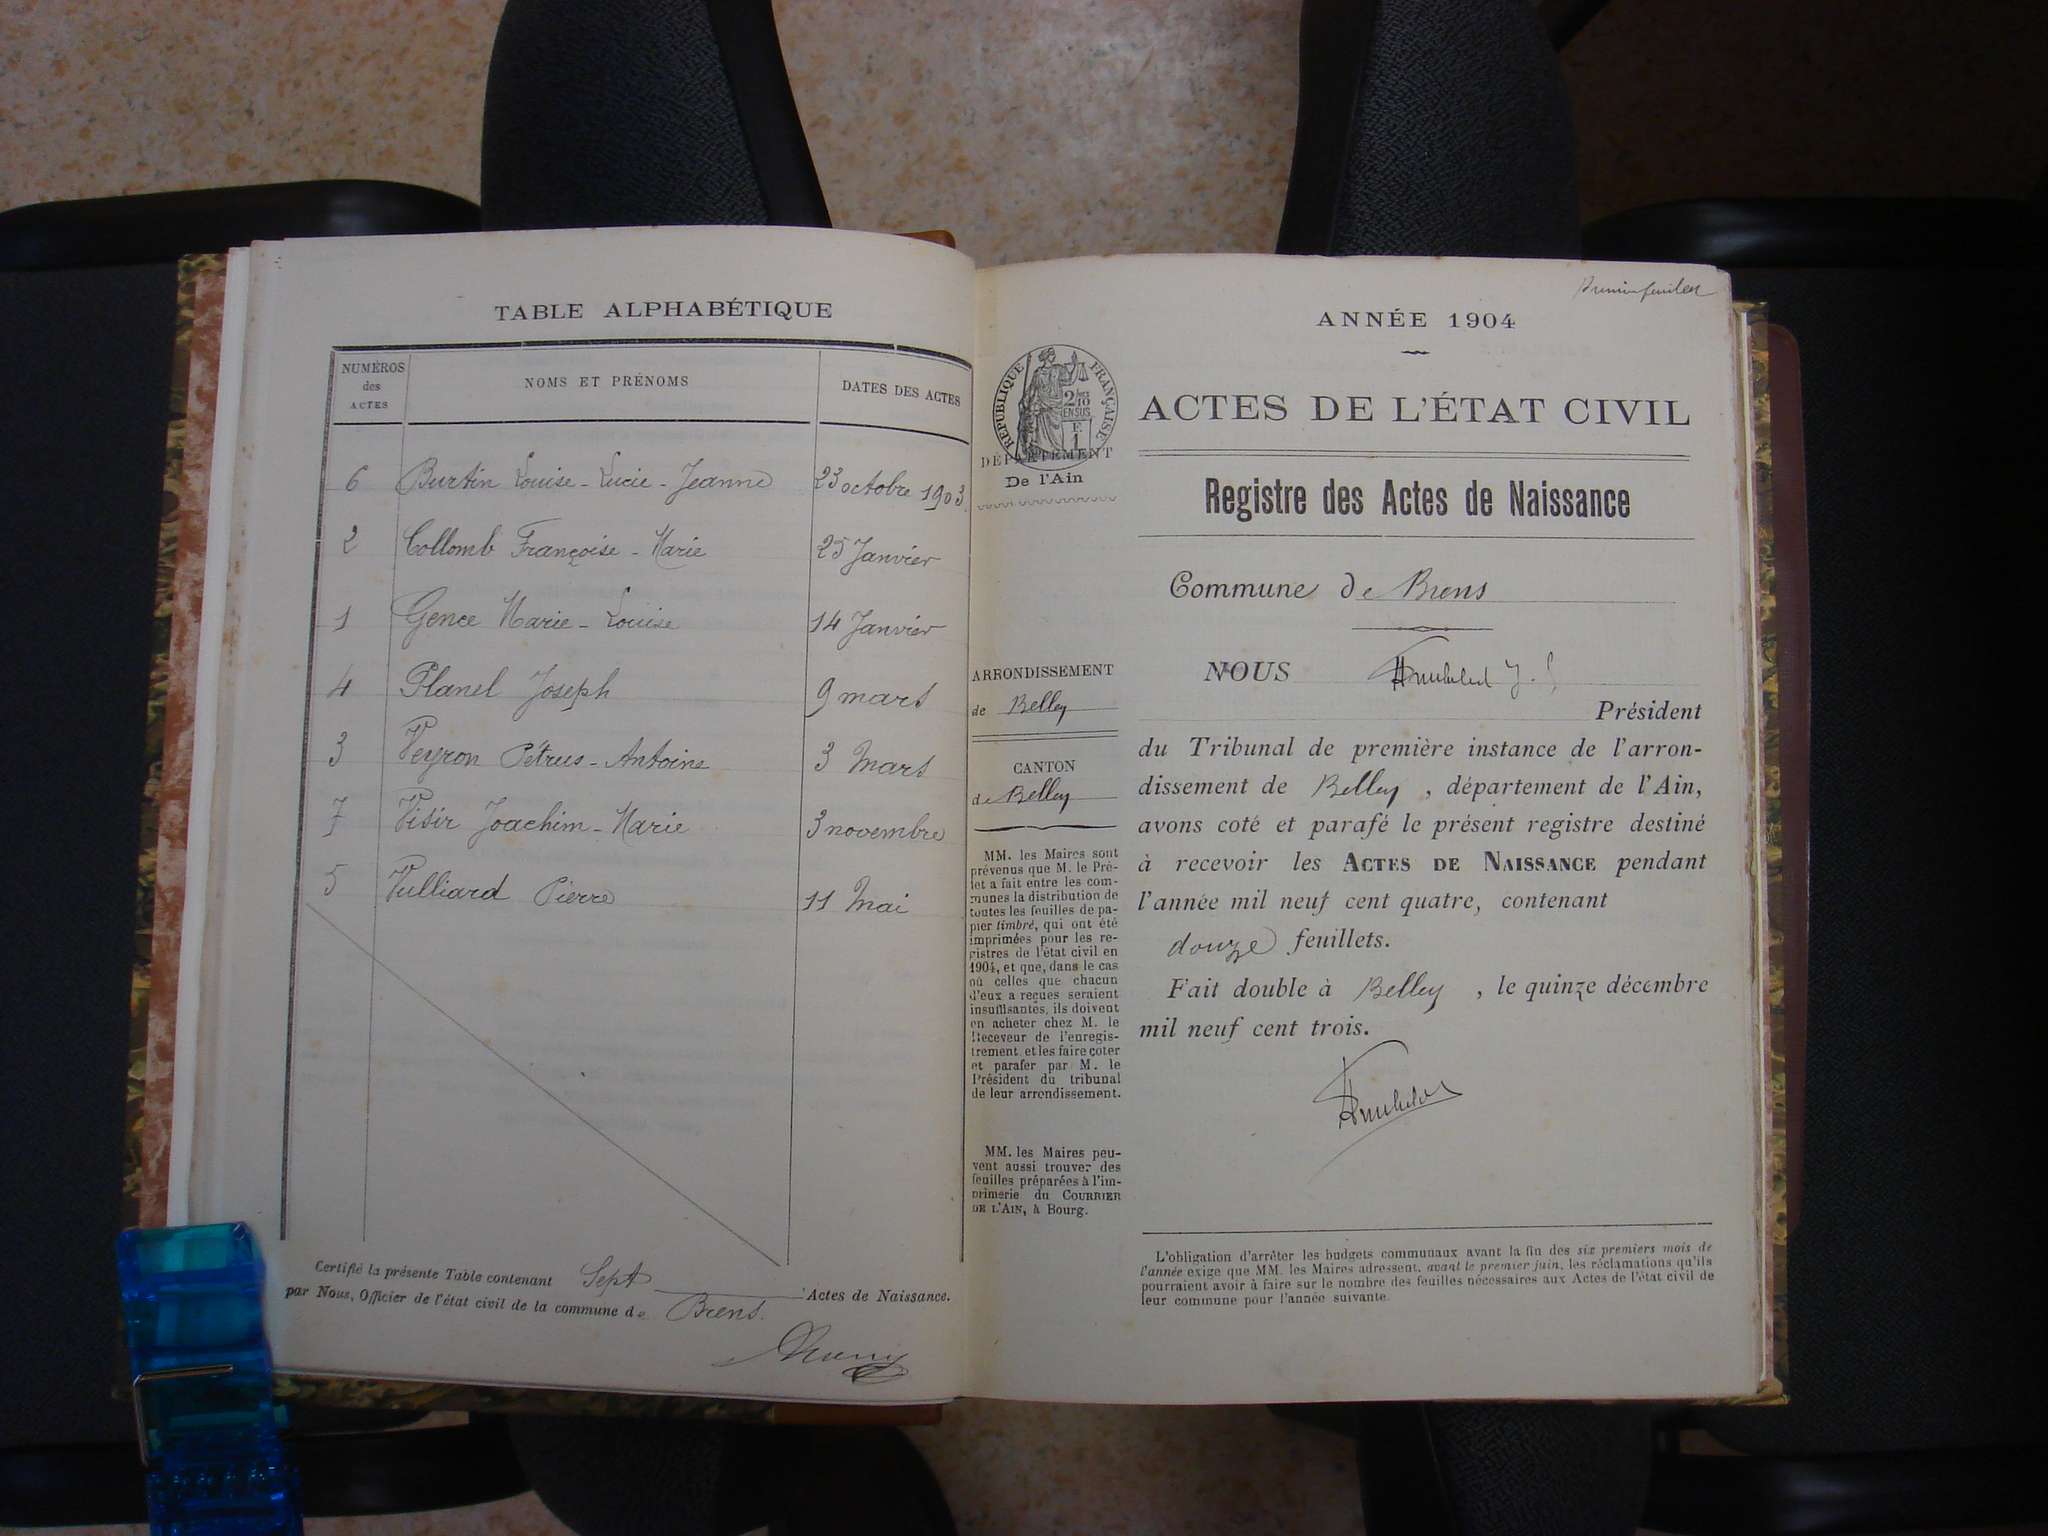 TABLE ALPHABÉTIQUE
NUMÉROS
des
ACTES
NOMS ET PRÉNOMS
DATES DES ACTES
6 Burtin Louise-Lucie-Jeanne 23 octobre 1903.
2 Collomb Françoise-Marie 25 Janvier
1 Gence Marie-Louise 14 Janvier
4 Planel Joseph 9 mars
3 Veyron Pétrus-Antoine 3 Mars
7 Visir Joachim-Marie 3 novembre
5 Vulliard Pierre 11 Mai
Certifié la présente Table contenant Sept Actes de Naissance.
par Nous, Officier de l'état civil de la commune de Brens.
ANNÉE 1904
RÉPUBLIQUE FRANÇAISE
2/10
EN SUS
F.
1
DÉPARTEMENT
De l'Ain
ARRONDISSEMENT
de Belley
CANTON
de Belley
MM. les Maires sont
prévenus que M. le Pré-
fet a fait entre les com-
munes la distribution de
toutes les feuilles de pa-
pier timbré, qui ont été
imprimées pour les re-
gistres de l'état civil en
1904, et que, dans le cas
où celles que chacun
d'eux a reçues seraient
insuffisantes, ils doivent
en acheter chez M. le
Receveur de l'enregis-
trement et les faire coter
et parafer par M. le
Président du tribunal
de leur arrondissement.
MM. les Maires peu-
vent aussi trouver des
feuilles préparées à l'im-
primerie du COURRIER
DE L'AIN, à Bourg.
ACTES DE L'ÉTAT CIVIL
Registre des Actes de Naissance
Commune de Brens
NOUS
Président
du Tribunal de première instance de l'arron-
dissement de Belley, département de l'Ain,
avons coté et parafé le présent registre destiné
à recevoir les ACTES DE NAISSANCE pendant
l'année mil neuf cent quatre, contenant
douze feuillets.
Fait double à Belley, le quinze décembre
mil neuf cent trois.
L'obligation d'arrêter les budgets communaux avant la fin des six premiers mois de
l'année exige que MM. les Maires adressent, avant le premier juin, les réclamations qu'ils
pourraient avoir à faire sur le nombre des feuilles nécessaires aux Actes de l'état civil de
leur commune pour l'année suivante.